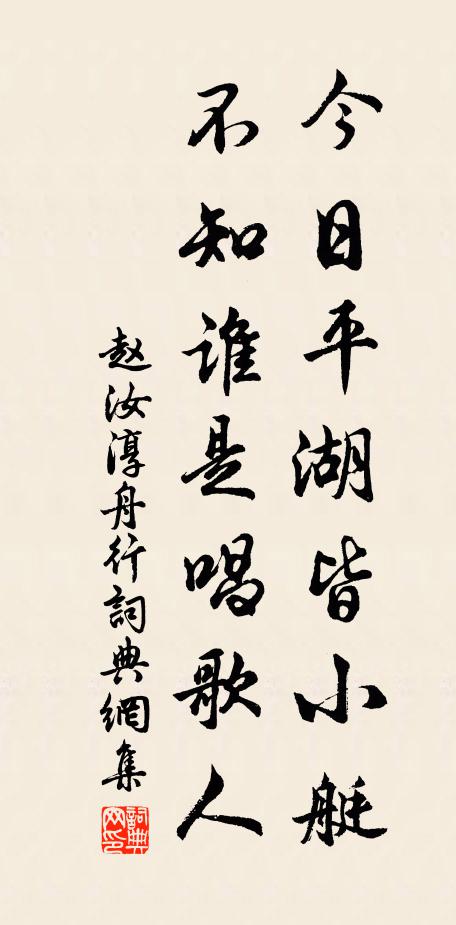 今日平湖皆小艇
不知谁是唱歌人
赵汝淳舟行詞典網集
詞典网印